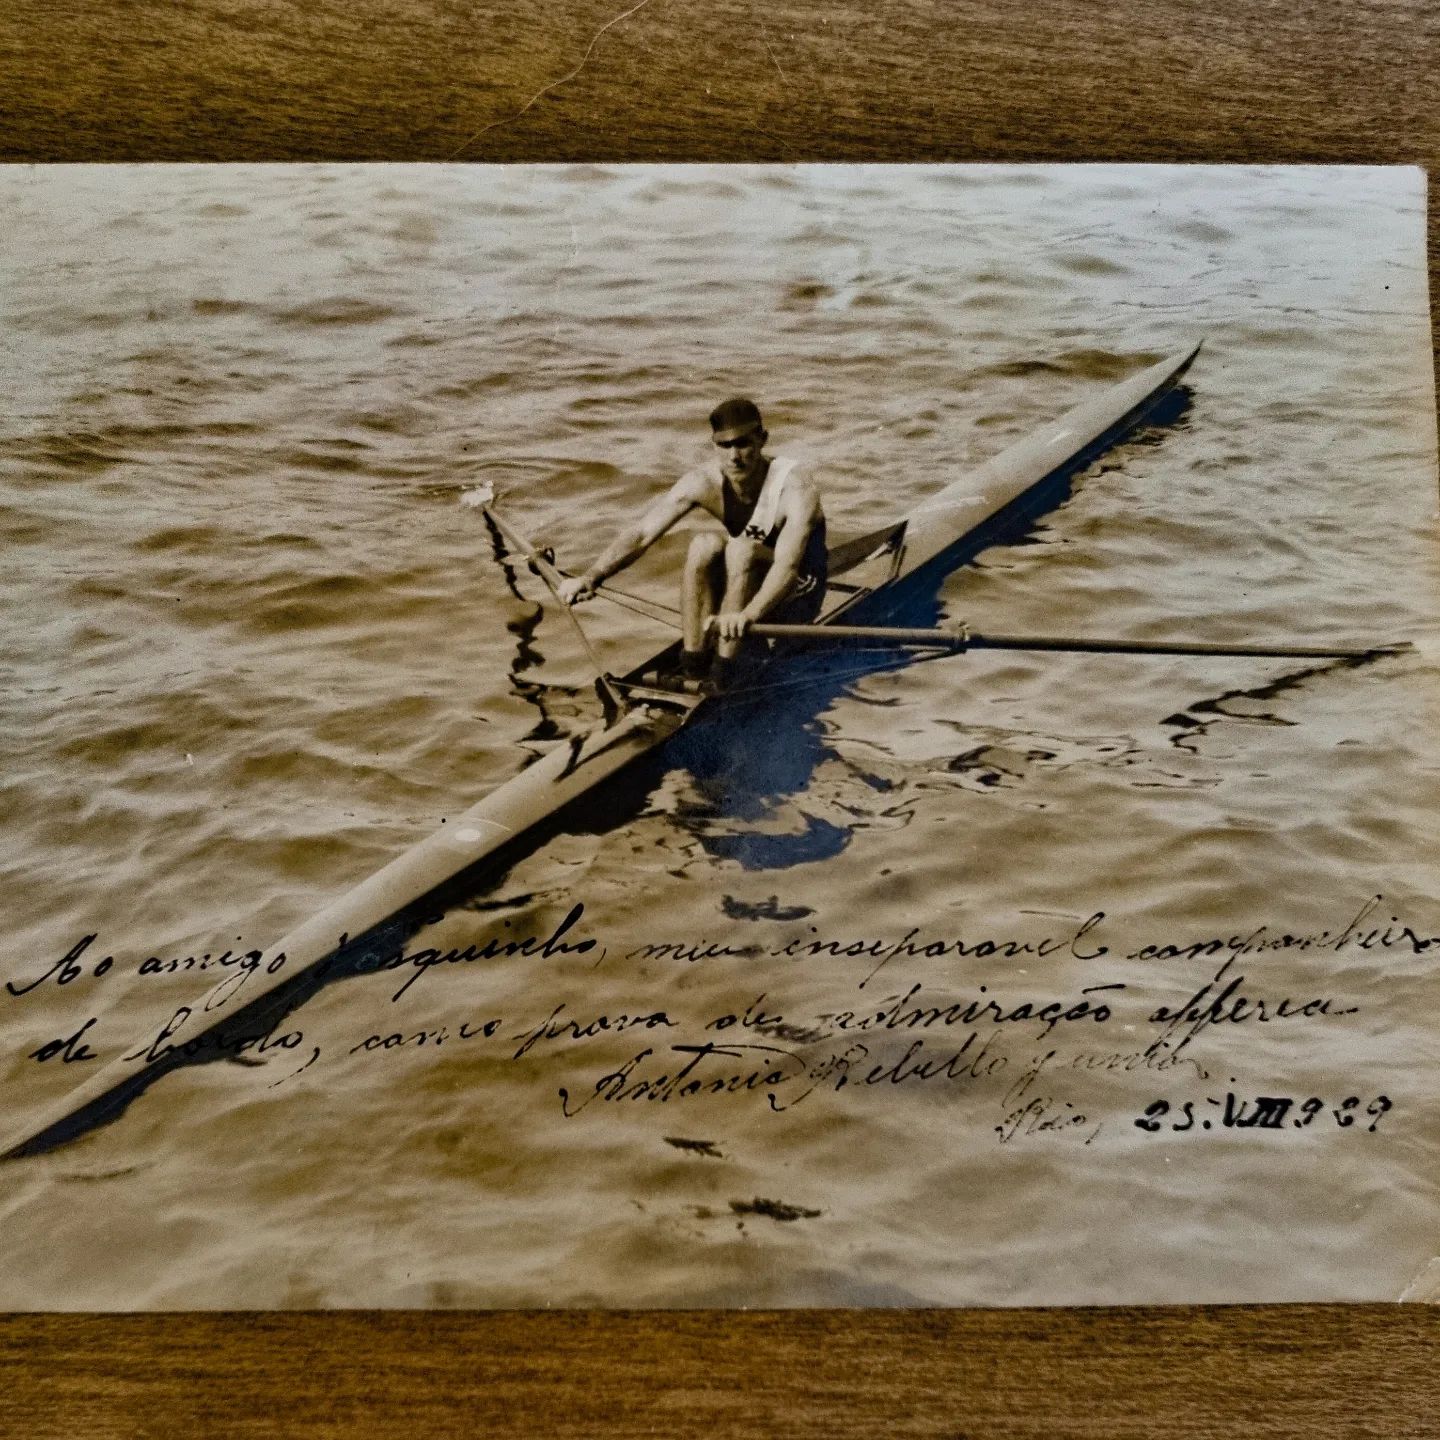 Ao amigo Vasquinho, meu inseparavel companheiro
de bordo, como prova de admiração offerece
Antonio Rebello Junior
Rio, 25.VIII.929